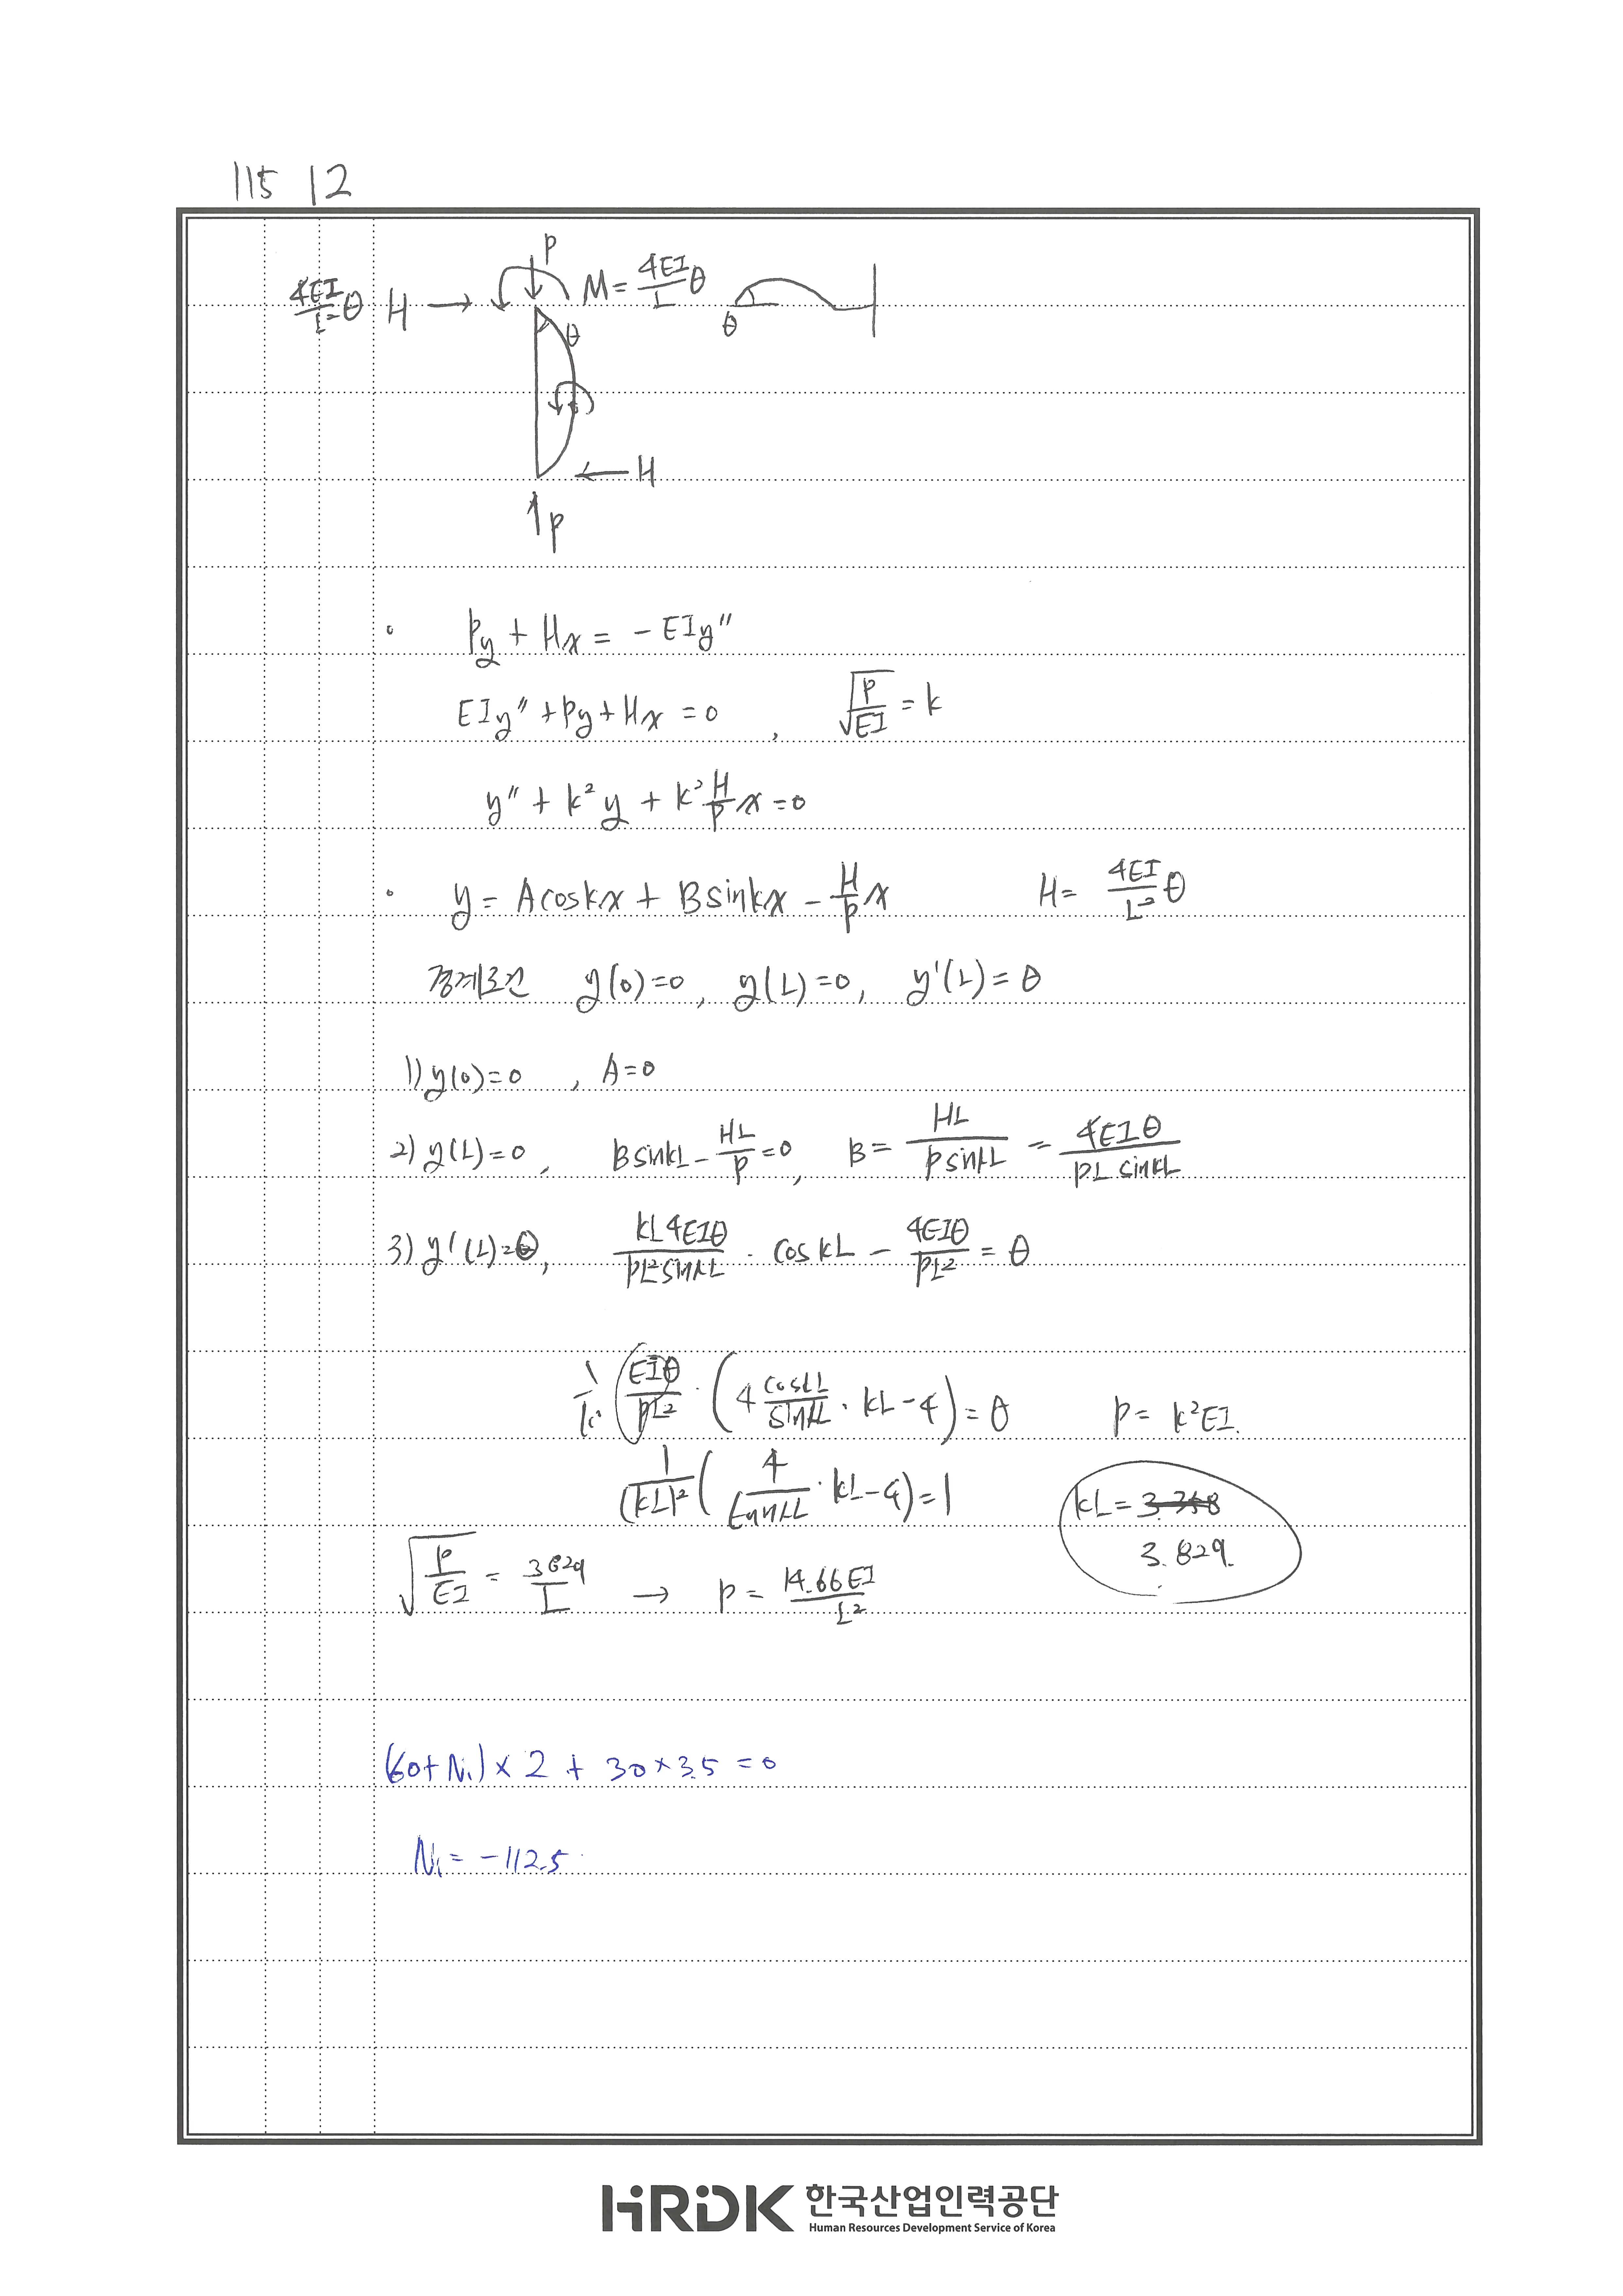 115 12
P
4EI/L² θ H → M = 4EI/L θ
θ
θ
← H
↑P
• Py + Hx = - EIy″
EIy″ + Py + Hx = 0 , √(P/EI) = k
y″ + k² y + k² H/P x = 0
• y = A cos kx + B sin kx - H/P x H = 4EI/L² θ
경계조건 y(0)=0, y(L)=0, y′(L) = θ
1) y(0)=0 , A=0
2) y(L)=0, B sin kL - HL/P = 0, B = HL/(P sin kL) = 4EIθ/(PL sin kL)
3) y′(L)=θ, kL4EIθ/(PL² sin kL) · cos kL - 4EIθ/PL² = θ
1/k² EIθ/PL² · (4 cos kL/sin kL · kL - 4) = θ P = k²EI.
1/(kL)² (4/tan kL · kL - 4) = 1 kL = 3.829.
√(P/EI) = 3.829/L → P = 14.66EI/L²
(60 + N₁) × 2 + 30 × 3.5 = 0
N₁ = -112.5
HRDK 한국산업인력공단
Human Resources Development Service of Korea